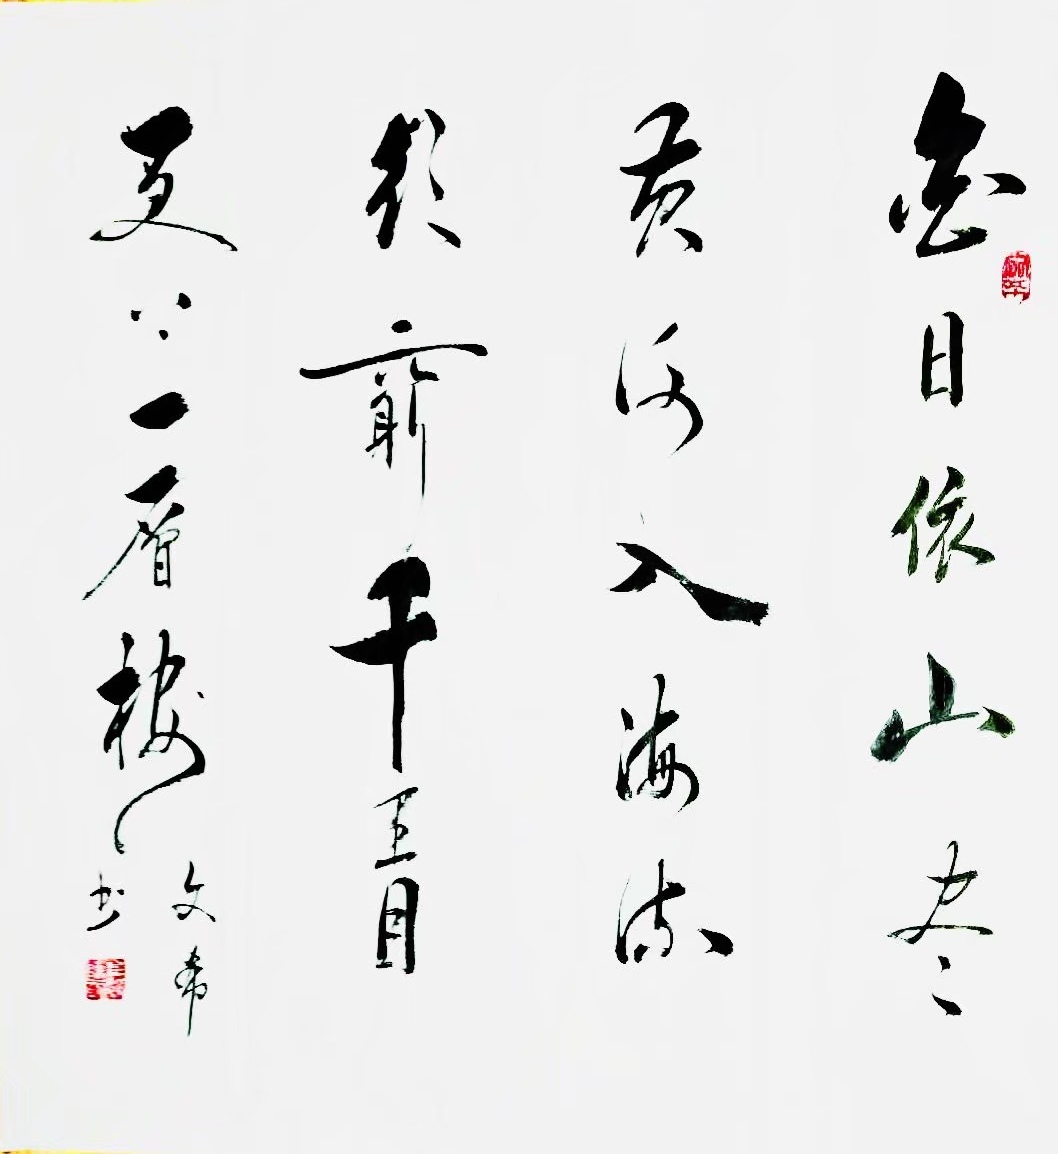 白日依山尽
黄河入海流
欲窮千里目
更上一層樓
文希
书